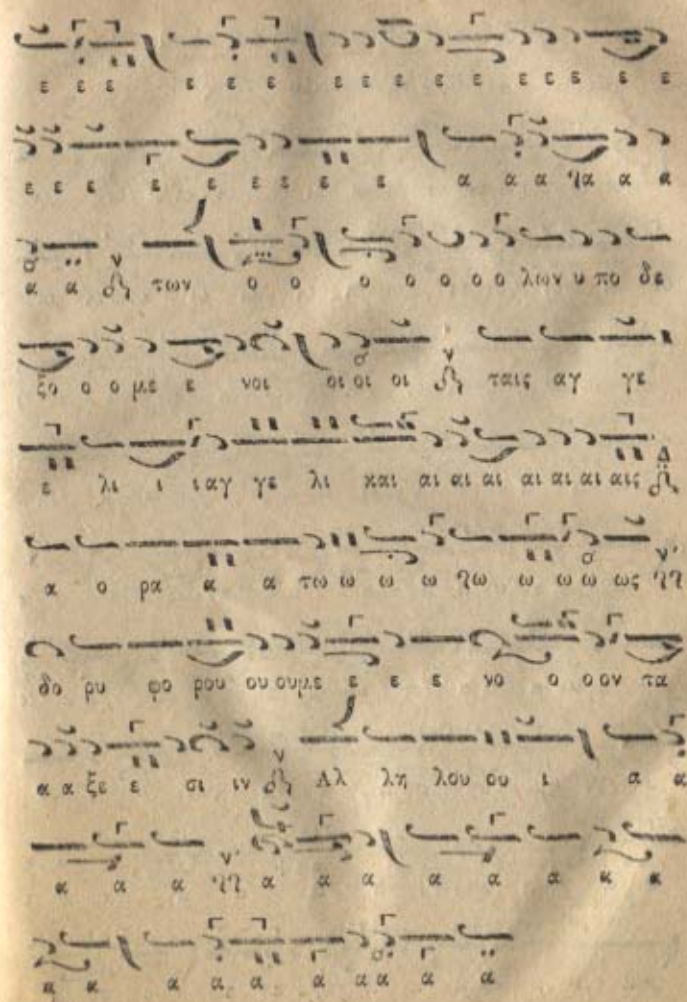 ε ε ε ε ε ε ε ε ε ε ε ε ε ε ε ε
ε ε ε ε ε ε ε ε ε ε α α α λα α α
α α των ο ο ο ο ο ο ο λων υ πο δε
ξο ο ο με ε νοι οι οι οι ταις αγ γε
ε λι ι ι αγ γε λι και αι αι αι αι αι αι αις Δ
α ο ρα α α τω ω ω ω λω ω ω ω ως
δο ρυ φο ρου ου ουμε ε ε ε νο ο ο ον τα
α α ξε ε σι ιν Αλ λη λου ου ι α α
α α α α α α α α α α α
α α α α α α α α α α